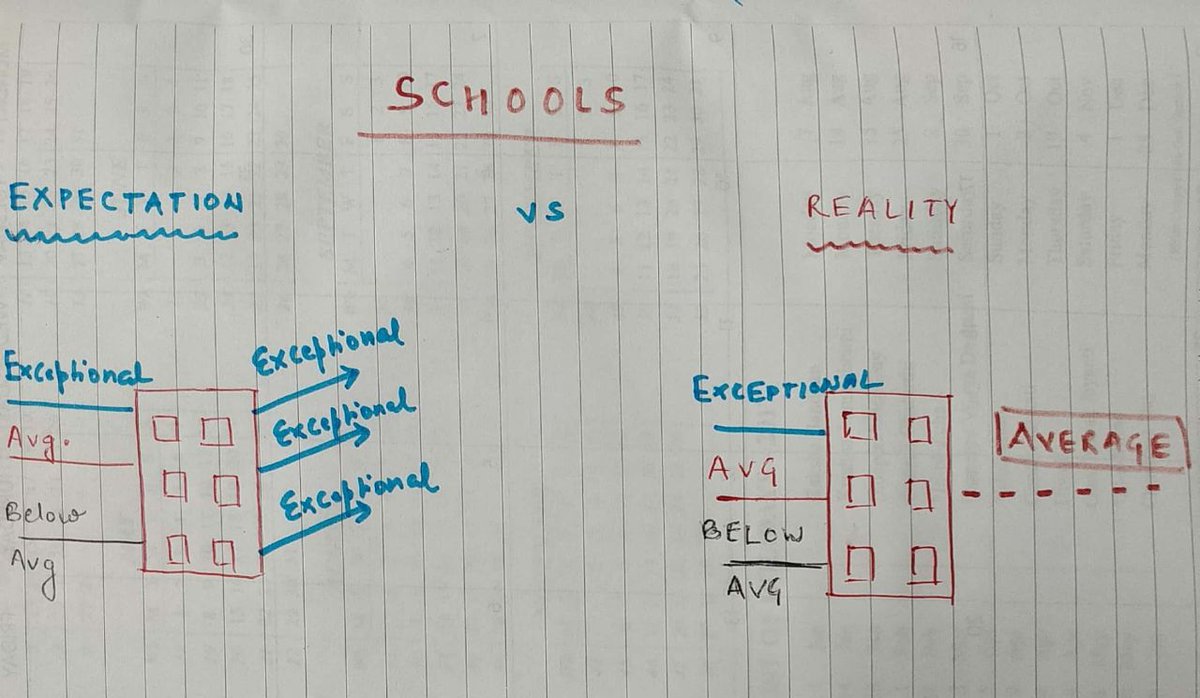 SCHOOLS
EXPECTATION
vs
REALITY
Exceptional
Avg.
Below
Avg
Exceptional
Exceptional
Exceptional
EXCEPTIONAL
AVG
BELOW
AVG
AVERAGE